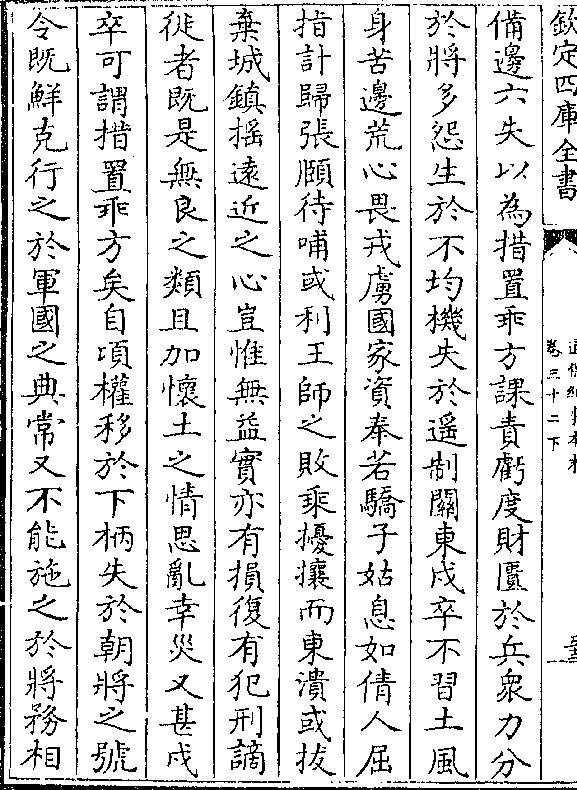 欽定四庫全書
卷三十二下
備邊六失以為措置乖方課責虧度財匱於兵衆力分
於將多怨生於不均機失於遥制關東戍卒不習土風
身苦邊荒心畏戎虜國家資奉若驕子姑息如倩人屈
指計歸張頤待哺或利王師之敗乘擾攘而東潰或拔
棄城鎮揺遠近之心豈惟無益實亦有損復有犯刑謫
徙者既是無良之類且加懷土之情思亂幸災又甚戍
卒可謂措置乖方矣自頃權移於下柄失於朝將之號
令既鮮克行之於軍國之典常又不能施之於將務相